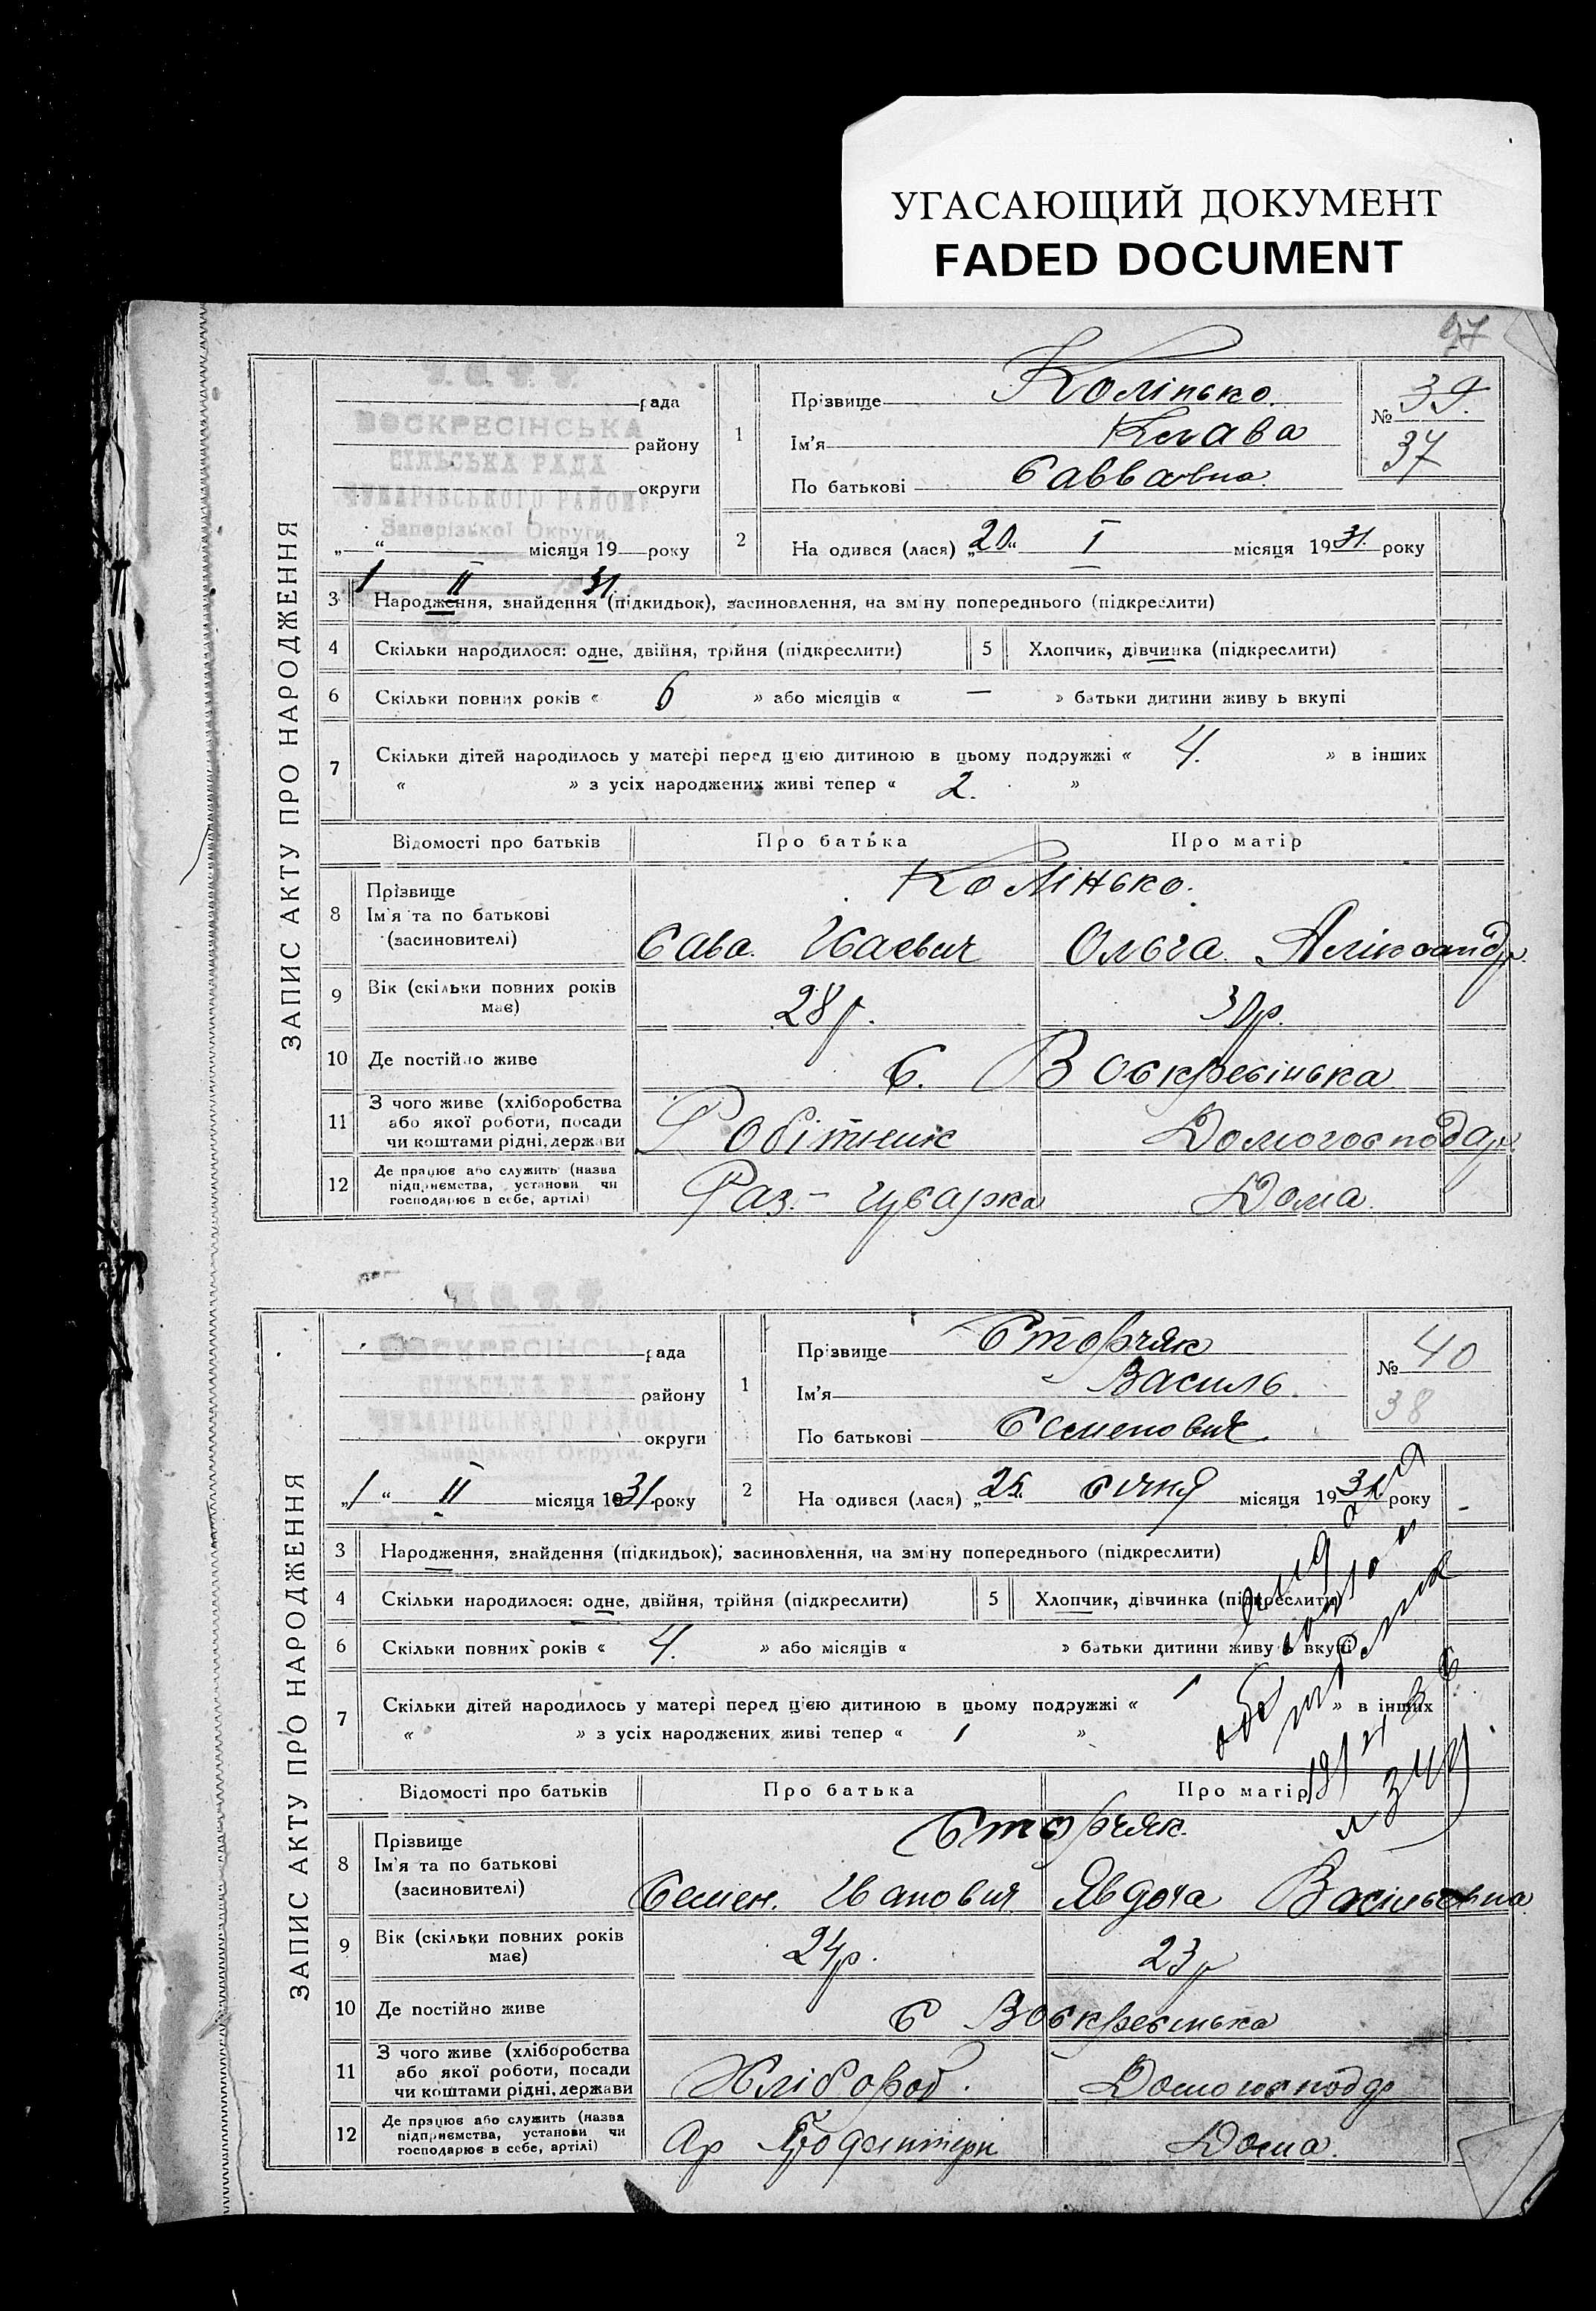 УГАСАЮЩИЙ ДОКУМЕНТ
FADED DOCUMENT
97
ЗАПИС АКТУ ПРО НАРОДЖЕННЯ
У.С.Р.Р.
рада
ВОСКРЕСІНСЬКА
району
СІЛЬСЬКА РАДА
округи
ЧУБАРІВСЬКОГО РАЙОНУ
Запорізької Округи
„ “ місяця 19 року
1 II 31.
1 Прізвище Колінько.
Ім'я Клава
По батькові Савваовна
№ 39.
37
2 На одився (лася) „20“ I місяця 1931. року
3 Народження, знайдення (підкидьок), засиновлення, на зміну попереднього (підкреслити)
4 Скільки народилося: одне, двійня, трійня (підкреслити) 5 Хлопчик, дівчинка (підкреслити)
6 Скільки повних років « 6 » або місяців « — » батьки дитини живу ь вкупі
7 Скільки дітей народилось у матері перед цією дитиною в цьому подружжі « 4. » в інших
« » з усіх народжених живі тепер « 2. »
Відомості про батьків Про батька Про матір
8 Прізвище Колінько.
Ім'я та по батькові
(засиновителі) Сава Ольга
9 Вік (скільки повних років має) 28 р. 30 р.
10 Де постійно живе С. Воскресінька
11 З чого живе (хліборобства
або якої роботи, посади
чи коштами рідні, держави Робітник Домогосподар
12 Де працює або служить (назва
підприємства, установи чи
господарює в себе, артілі) Дома.
ЗАПИС АКТУ ПРО НАРОДЖЕННЯ
У.С.Р.Р.
рада
ВОСКРЕСІНСЬКА
району
СІЛЬСЬКА РАДА
округи
ЧУБАРІВСЬКОГО РАЙОНУ
Запорізької Округи.
„1“ II місяця 1931 року
1 Прізвище Сторчяк
Ім'я Василь.
По батькові Семенович
№ 40
38
2 На одився (лася) „25“ січня місяця 1931 року
3 Народження, знайдення (підкидьок); засиновлення, на зміну попереднього (підкреслити)
4 Скільки народилося: одне, двійня, трійня (підкреслити) 5 Хлопчик, дівчинка (підкреслити)
6 Скільки повних років « 4. » або місяців « » батьки дитини живу вкупі
7 Скільки дітей народилось у матері перед цією дитиною в цьому подружжі « 1 » в інших
« » з усіх народжених живі тепер « 1 »
Відомості про батьків Про батька Про матір
8 Прізвище Сторчяк.
Ім'я та по батькові
(засиновителі) Семен. Іванович Явдоха Васільевна
9 Вік (скільки повних років має) 24 р. 23 р
10 Де постійно живе С Воскресінька
11 З чого живе (хліборобства
або якої роботи, посади
чи коштами рідні, держави Хлібороб. Домогосподр
12 Де працює або служить (назва
підприємства, установи чи
господарює в себе, артілі) Ар Дома.